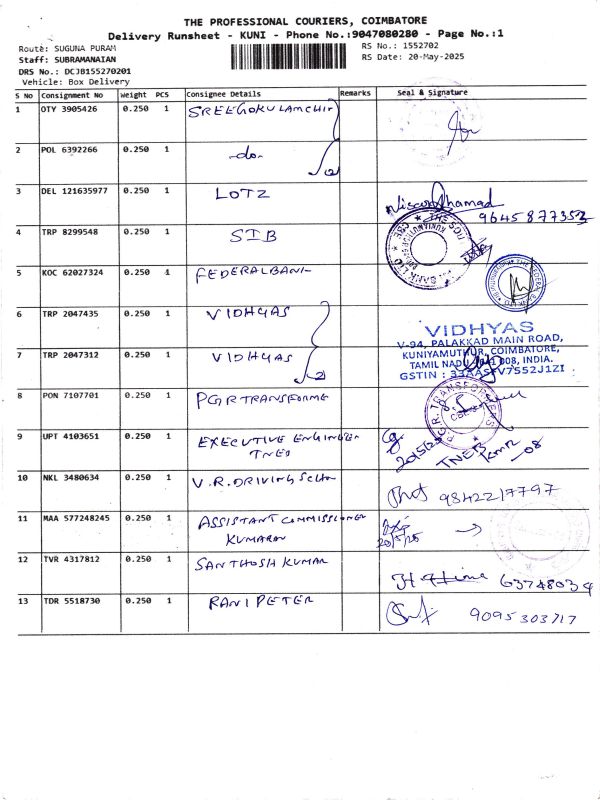 THE PROFESSIONAL COURIERS, COIMBATORE
Delivery Runsheet - KUNI - Phone No.:9047080280 - Page No.:1
Route: SUGUNA PURAM
RS No.: 1552702
Staff: SUBRAMANAIAN
RS Date: 20-May-2025
DRS No.: DCJB155270201
Vehicle: Box Delivery
S No Consignment No Weight PCS Consignee Details Remarks Seal & Signature
1 OTY 3905426 0.250 1 SREEGOKULAMCHIT
2 POL 6392266 0.250 1 -do-
3 DEL 121635977 0.250 1 LOTZ
9645877352
4 TRP 8299548 0.250 1 SIB
5 KOC 62027324 0.250 1 FEDERALBANK
6 TRP 2047435 0.250 1 VIDHYAS
VIDHYAS
V-94, PALAKKAD MAIN ROAD,
KUNIYAMUTHUR, COIMBATORE,
7 TRP 2047312 0.250 1 VIDHYAS
TAMIL NADU 641 008, INDIA.
GSTIN : 33AASFV7552J1ZI
8 PON 7107701 0.250 1 PGRTRANSFORME
P.G.R. TRANSFORMERS
9 UPT 4103651 0.250 1 EXECUTIVE ENGINEER
TNEB
20/5/25 TNEB KMR -08
10 NKL 3480634 0.250 1 V.R.DRIVING School
9842217797
11 MAA 577248245 0.250 1 ASSISTANT COMMISSIONER
KUMARAN
20/5/25
12 TVR 4317812 0.250 1 SANTHOSH KUMAR
63748034
13 TDR 5518730 0.250 1 RANI PETER
9095303717